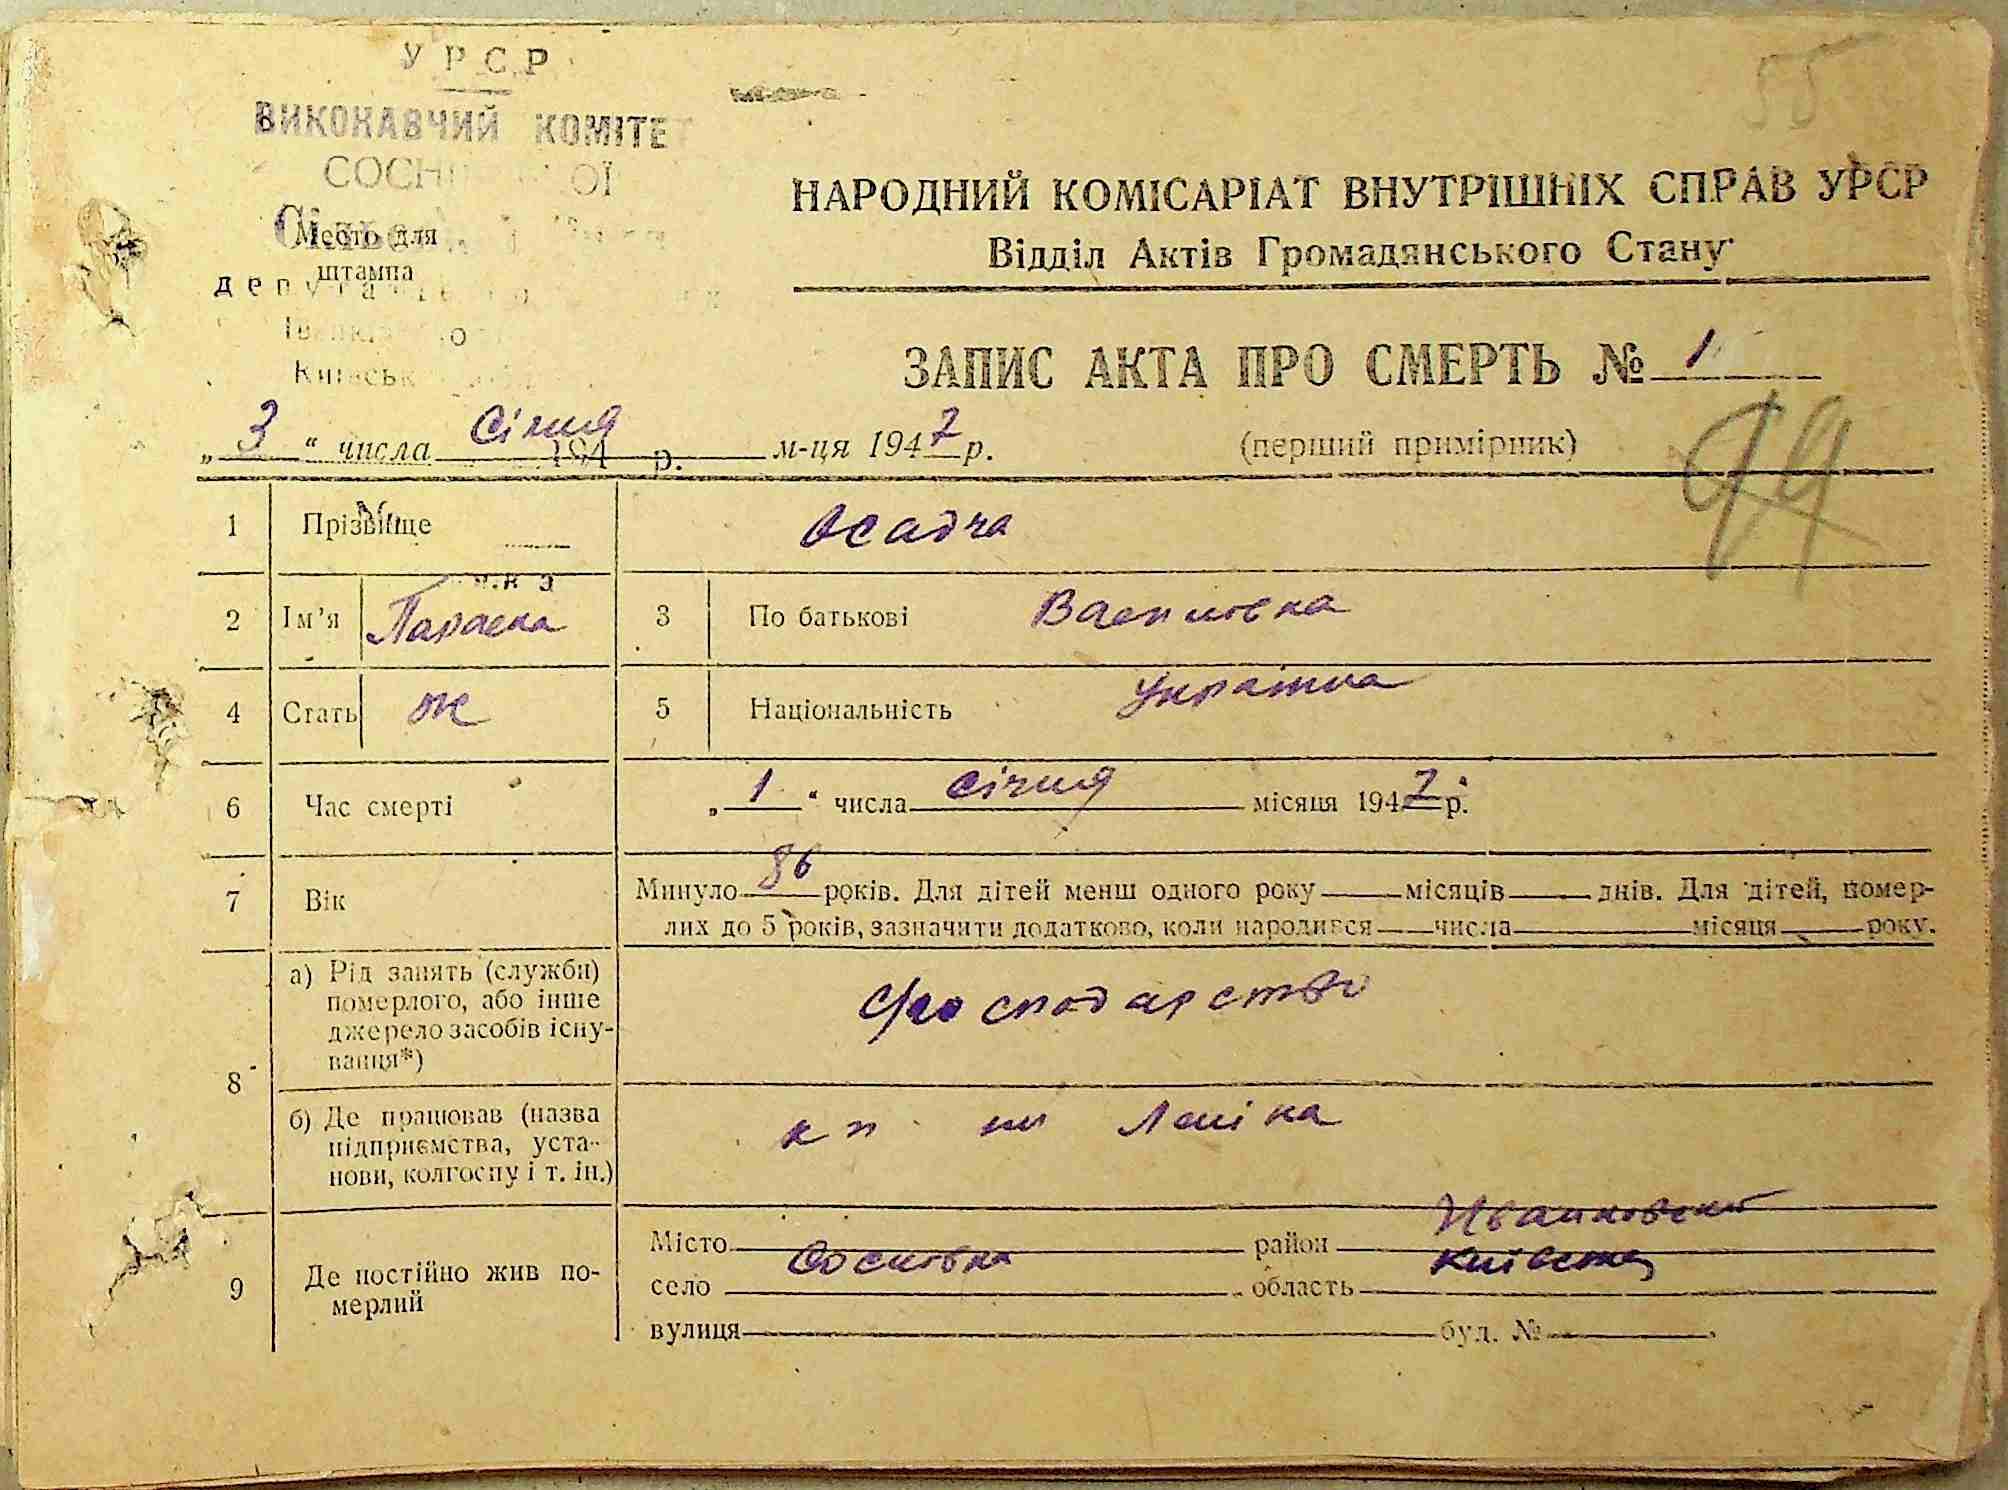 УРСР
ВИКОНАВЧИЙ КОМІТЕТ
Место для
штампа
55
НАРОДНИЙ КОМІСАРІАТ ВНУТРІШНІХ СПРАВ УРСР
Відділ Актів Громадянського Стану
ЗАПИС АКТА ПРО СМЕРТЬ № 1
„ 3 “ числа Січня м-ця 1947 р. (перший примірник)
194 р.
1 Прізвище Осадча
2 Ім’я Параска 3 По батькові Василовна
4 Стать ж 5 Національність Українка
6 Час смерті „ 1 “ числа січня місяця 1947 р.
7 Вік Минуло 86 років. Для дітей менш одного року місяців днів. Для дітей, помер-
лих до 5 років, зазначити додатково, коли народився числа місяця року.
8 а) Рід занять (служби)
померлого, або інше
джерело засобів існу-
вання*)
с/господарство
б) Де працював (назва
підприємства, уста-
нови, колгоспу і т. ін.)
Леніна
9 Де постійно жив по-
мерлий
Місто район Иванковский
село Сосновка область Київська
вулиця буд. №